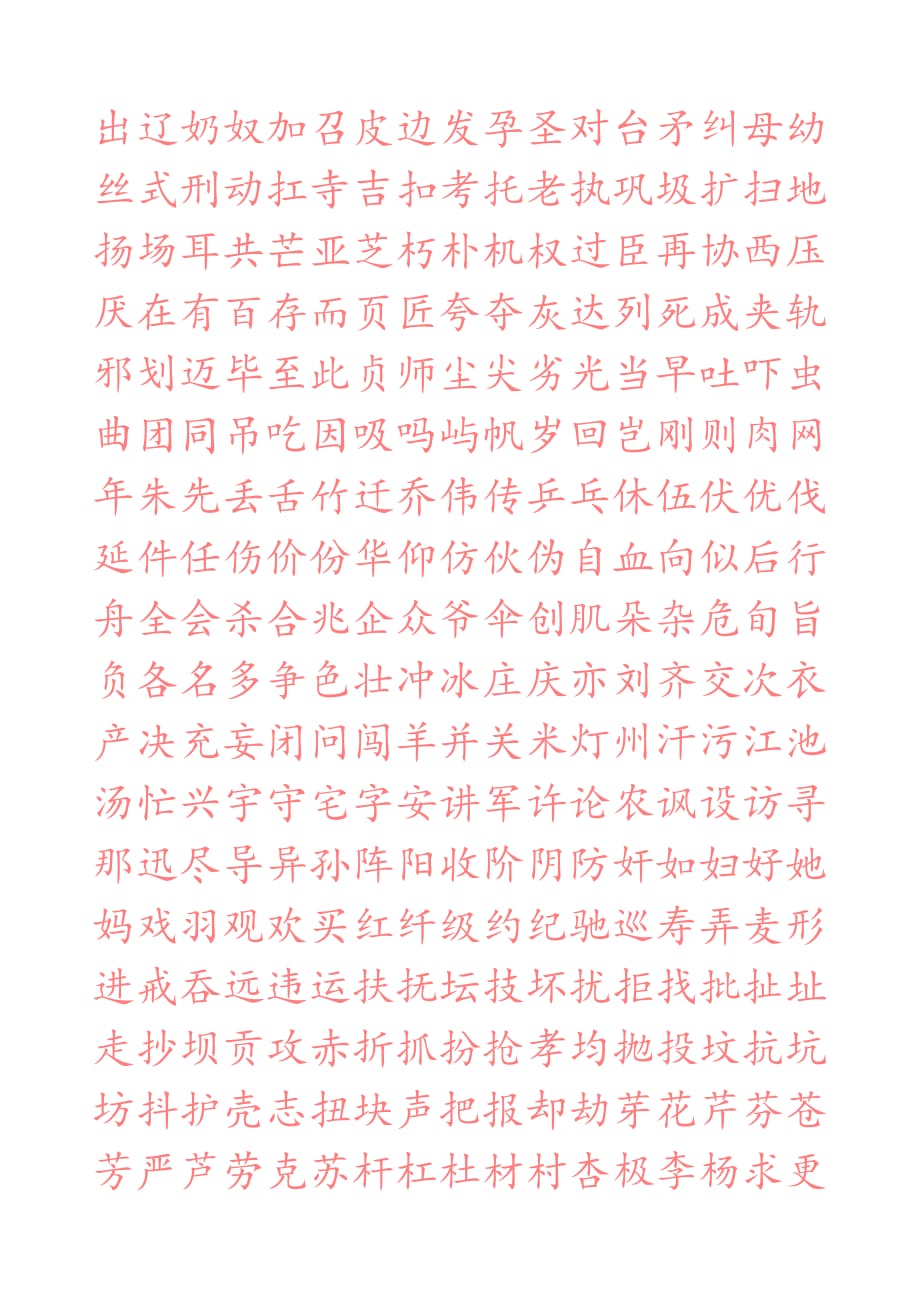 出辽奶奴加召皮边发孕圣对台矛纠母幼
丝式刑动扛寺吉扣考托老执巩圾扩扫地
扬场耳共芒亚芝朽朴机权过臣再协西压
厌在有百存而页匠夸夺灰达列死成夹轨
邪划迈毕至此贞师尘尖劣光当早吐吓虫
曲团同吊吃因吸吗屿帆岁回岂刚则肉网
年朱先丢舌竹迁乔伟传乒乓休伍伏优伐
延件任伤价份华仰仿伙伪自血向似后行
舟全会杀合兆企众爷伞创肌朵杂危旬旨
负各名多争色壮冲冰庄庆亦刘齐交次衣
产决充妄闭问闯羊并关米灯州汗污江池
汤忙兴宇守宅字安讲军许论农讽设访寻
那迅尽导异孙阵阳收阶阴防奸如妇好她
妈戏羽观欢买红纤级约纪驰巡寿弄麦形
进戒吞远违运扶抚坛技坏扰拒找批扯址
走抄坝贡攻赤折抓扮抢孝均抛投坟抗坑
坊抖护壳志扭块声把报却劫芽花芹芬苍
芳严芦劳克苏杆杠杜材村杏极李杨求更